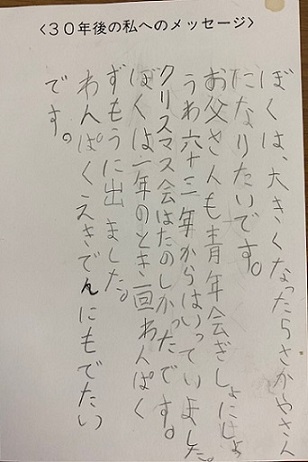 <30年後の私へのメッセージ>
ぼくは、大きくなったらさかやさん
になりたいです。
お父さんも青年会ぎしょにしょ
うわ六十三年からはいっていました。
クリスマス会はたのしかったです。
ぼくは一年のとき一回わんぱく
ずもうに出ました。
わんぱくえきでんにもでたい
です。